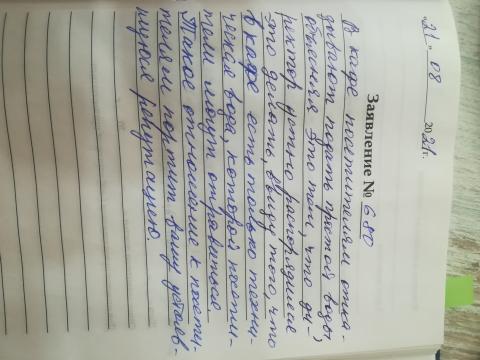 "21" 08 2021 г.
Заявление № 680
В кафе посетителям отка-
зывают подать простой воды
объясняя это тем, что ди-
ректор устно распорядился
это делать, ввиду того, что
в кафе есть только техни-
ческая вода, которой посети-
тели могут отравиться.
Такое отношение к посети-
телям портит вашу
репутацию.